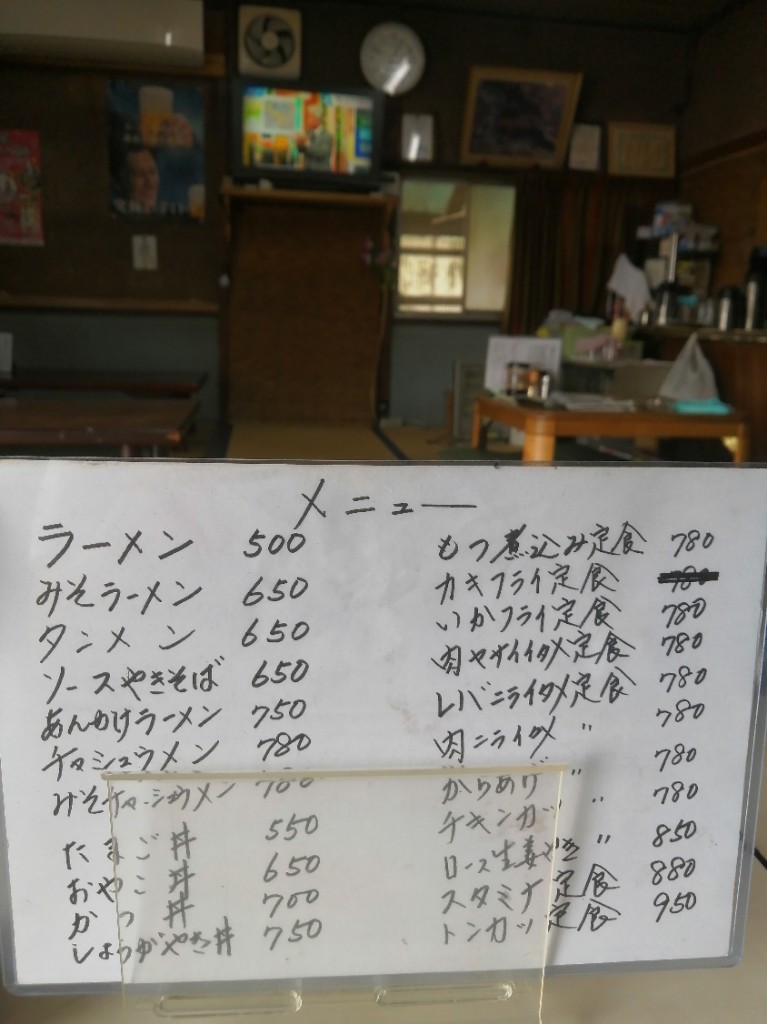 メニュー
ラーメン 500
みそラーメン 650
タンメン 650
ソースやきそば 650
あんかけラーメン 750
チャシュウメン 780
みそチャーシュウメン 780
たまご丼 550
おやこ丼 650
かつ丼 700
しょうがやき丼 750
もつ煮込み定食 780
カキフライ定食
いかフライ定食 780
肉ヤサイイタメ定食 780
レバニライタメ定食 780
肉ニライタメ 〃 780
からあげ 〃 780
チキンカツ 〃 780
ロース生姜やき 〃 850
スタミナ定食 880
トンカツ定食 950